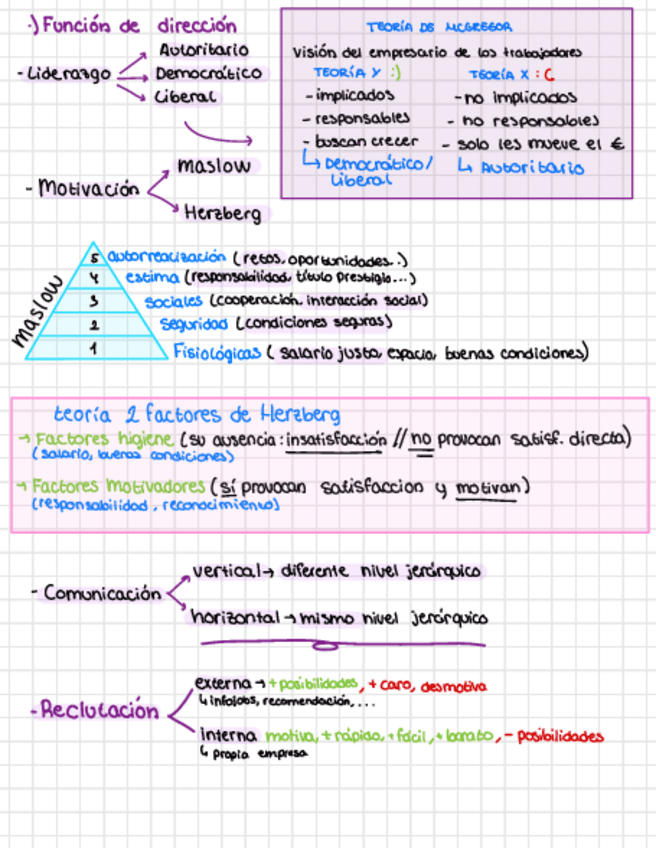 ·) Función de dirección
- Liderazgo
Autoritario
Democrático
Liberal
TEORÍA DE MCGREGOR
Visión del empresario de los trabajadores
TEORÍA Y :)
- implicados
- responsables
- buscan crecer
↳ Democrático/
Liberal
TEORÍA X :C
- no implicados
- no responsables
- solo les mueve el €
↳ Autoritario
- Motivación
maslow
Herzberg
maslow
5 autorrealización (retos, oportunidades..)
4 estima (responsabilidad, título prestigio...)
3 sociales (cooperación, interacción social)
2 seguridad (condiciones seguras)
1 Fisiológicas ( salario justo, espacio, buenas condiciones)
teoría 2 factores de Herzberg
→ Factores higiene (su ausencia: insatisfacción // no provocan satisf. directa)
(salario, buenas condiciones)
→ Factores motivadores (sí provocan satisfaccion y motivan)
(responsabilidad, reconocimiento)
- Comunicación
vertical → diferente nivel jerárquico
horizontal → mismo nivel jerárquico
- Reclutación
externa → + posibilidades, + caro, desmotiva
↳ infojobs, recomendación,...
interna motiva, + rápido, + fácil, + barato, - posibilidades
↳ propia empresa